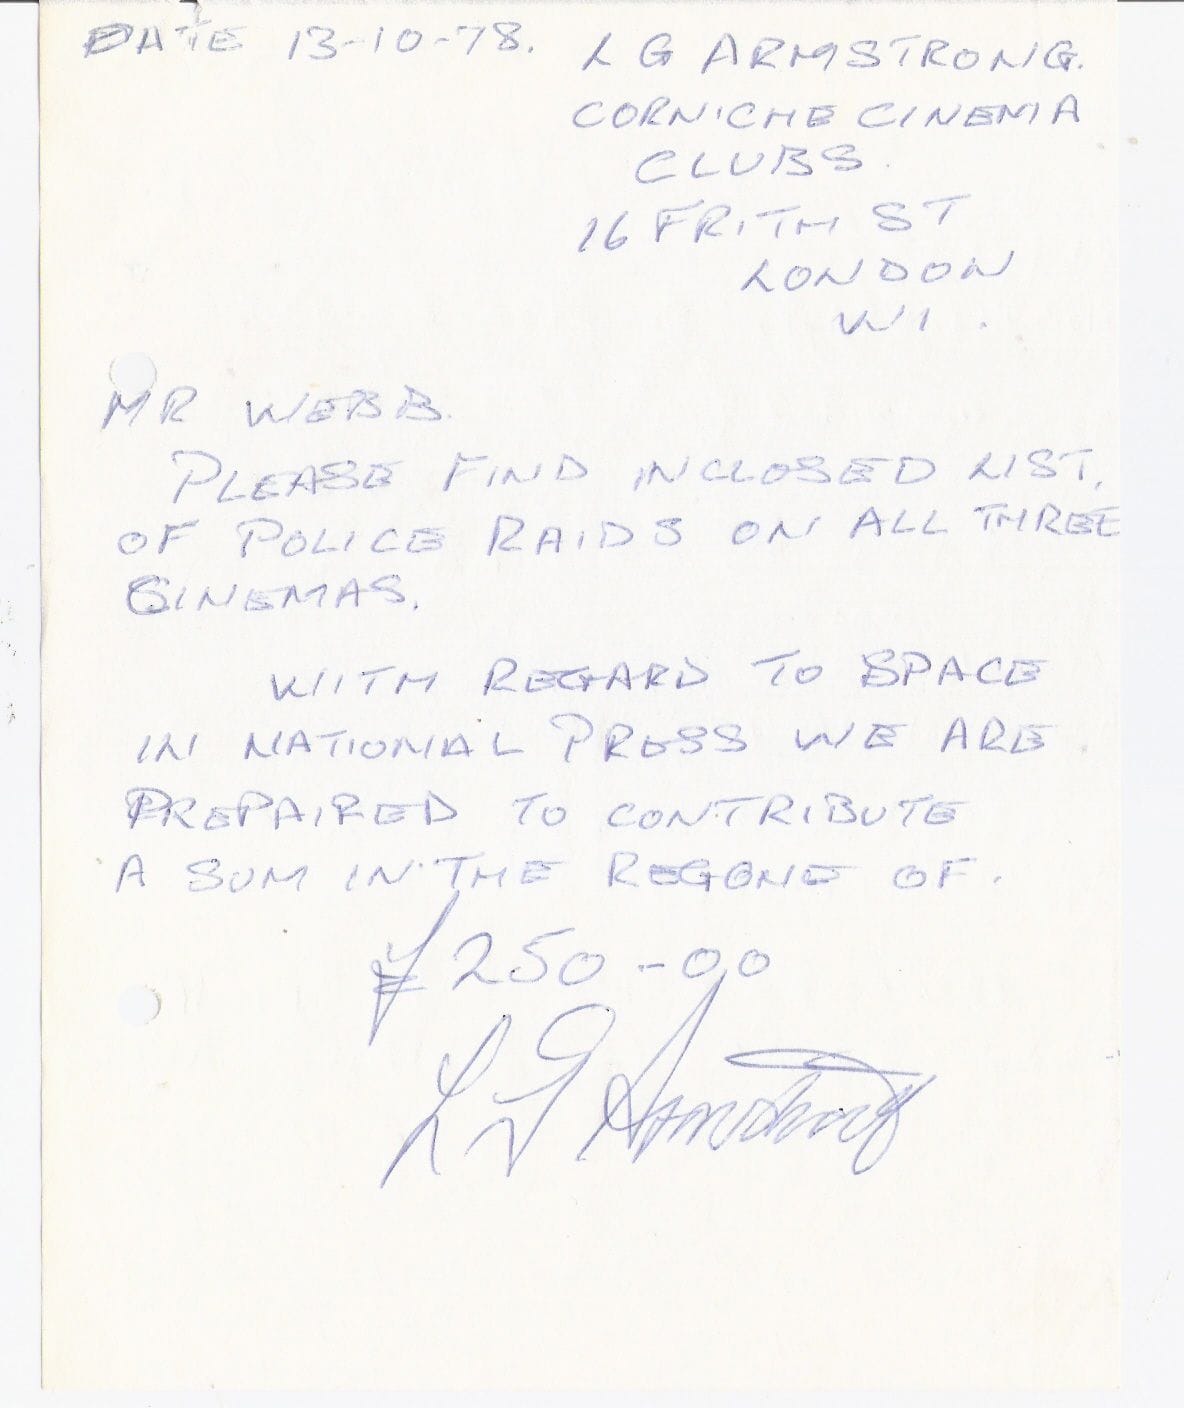 DATE 13-10-78.
L G ARMSTRONG.
CORNICHE CINEMA
CLUBS.
16 FRITH ST
LONDON
W1.
MR WEBB.
PLEASE FIND INCLOSED LIST.
OF POLICE RAIDS ON ALL THREE
CINEMAS.
WITH REGARD TO SPACE
IN NATIONAL PRESS WE ARE
PREPAIRED TO CONTRIBUTE
A SUM IN THE REGONE OF.
£250-00
L G Armstrong